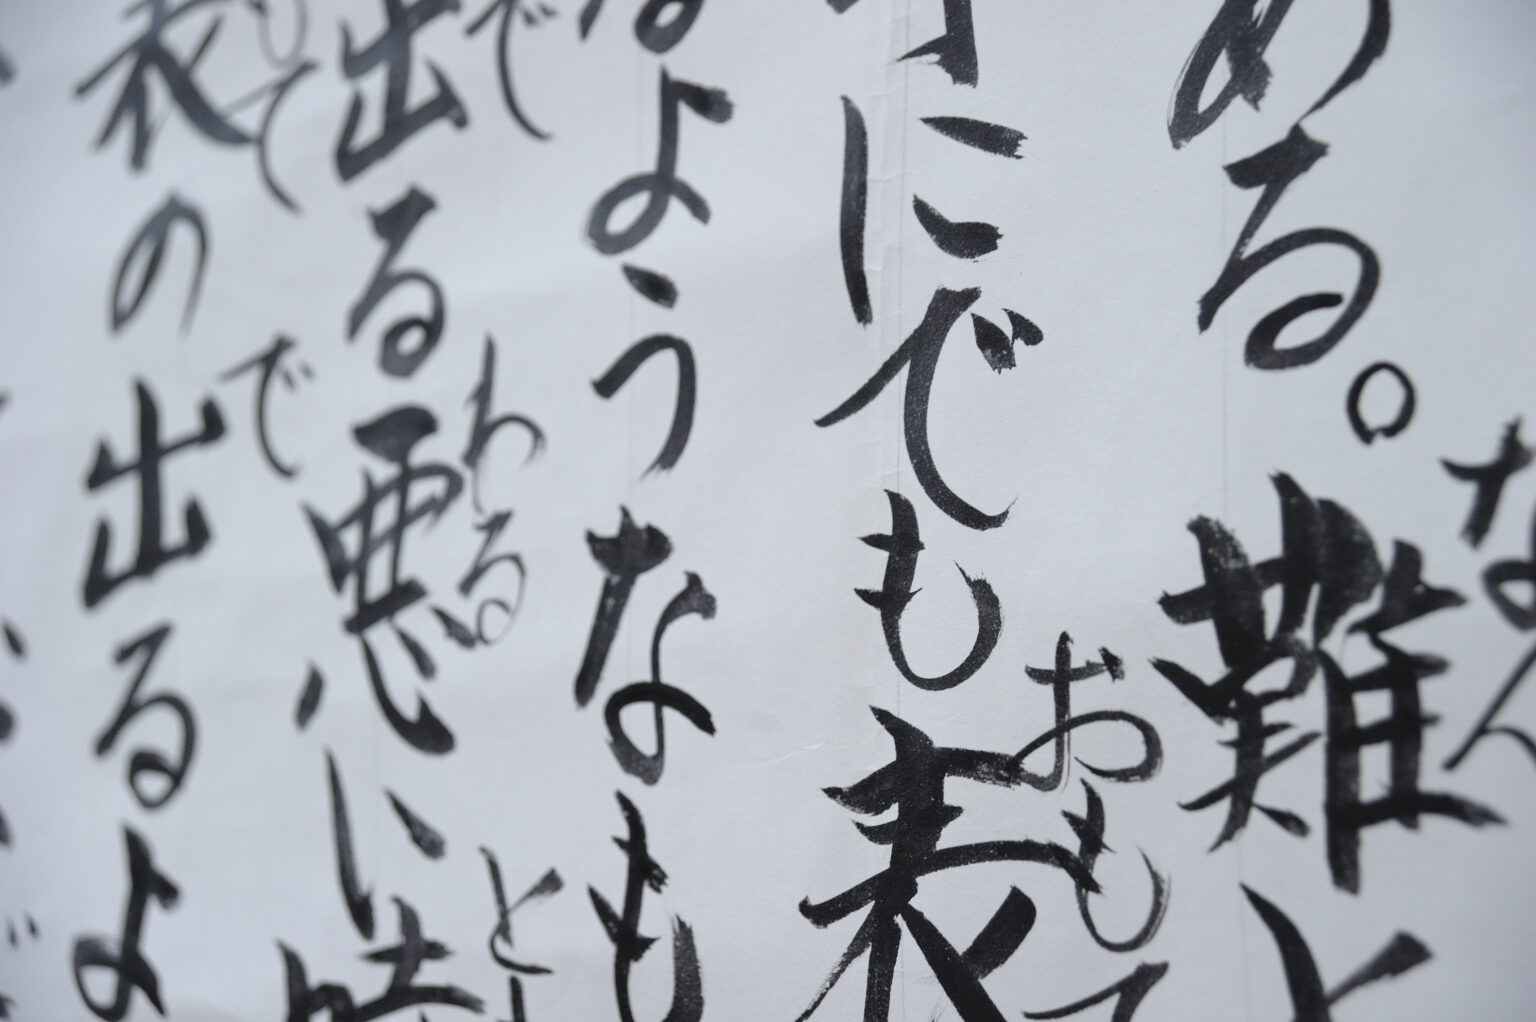 なん
ある。難と
おもて
にでも表
ようなも
で わる と
出る悪い時
て で
表の出るよ